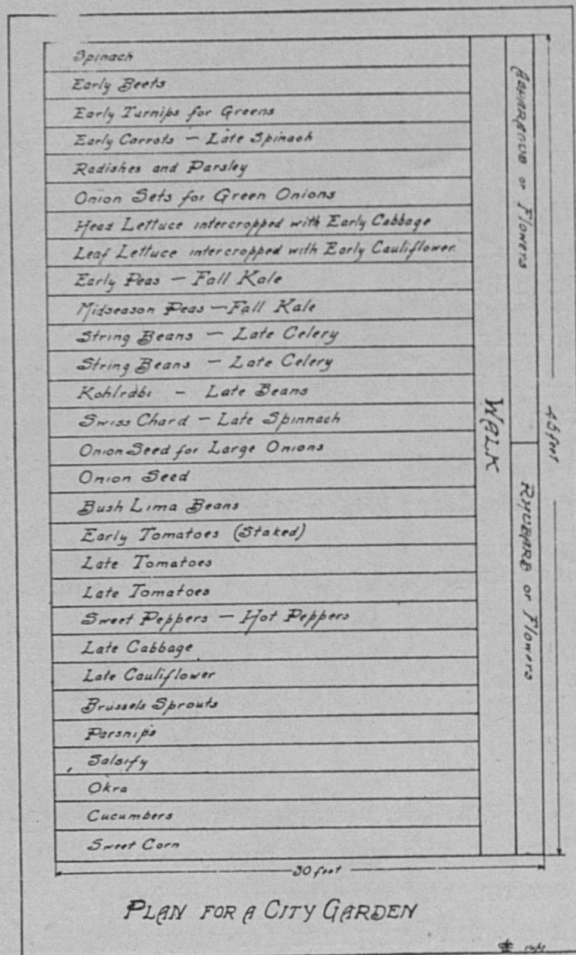 Spinach
Early Beets
Early Turnips for Greens
Early Carrots – Late Spinach
Radishes and Parsley
Onion Sets for Green Onions
Head Lettuce intercropped with Early Cabbage
Leaf Lettuce intercropped with Early Cauliflower
Early Peas – Fall Kale
Midseason Peas – Fall Kale
String Beans – Late Celery
String Beans – Late Celery
Kohlrabi – Late Beans
Swiss Chard – Late Spinnach
Onion Seed for Large Onions
Onion Seed
Bush Lima Beans
Early Tomatoes (Staked)
Late Tomatoes
Late Tomatoes
Sweet Peppers – Hot Peppers
Late Cabbage
Late Cauliflower
Brussels Sprouts
Parsnips
Salsify
Okra
Cucumbers
Sweet Corn
WALK
or Flowers
RHUBARB or Flowers
45 feet
30 feet
PLAN FOR A CITY GARDEN